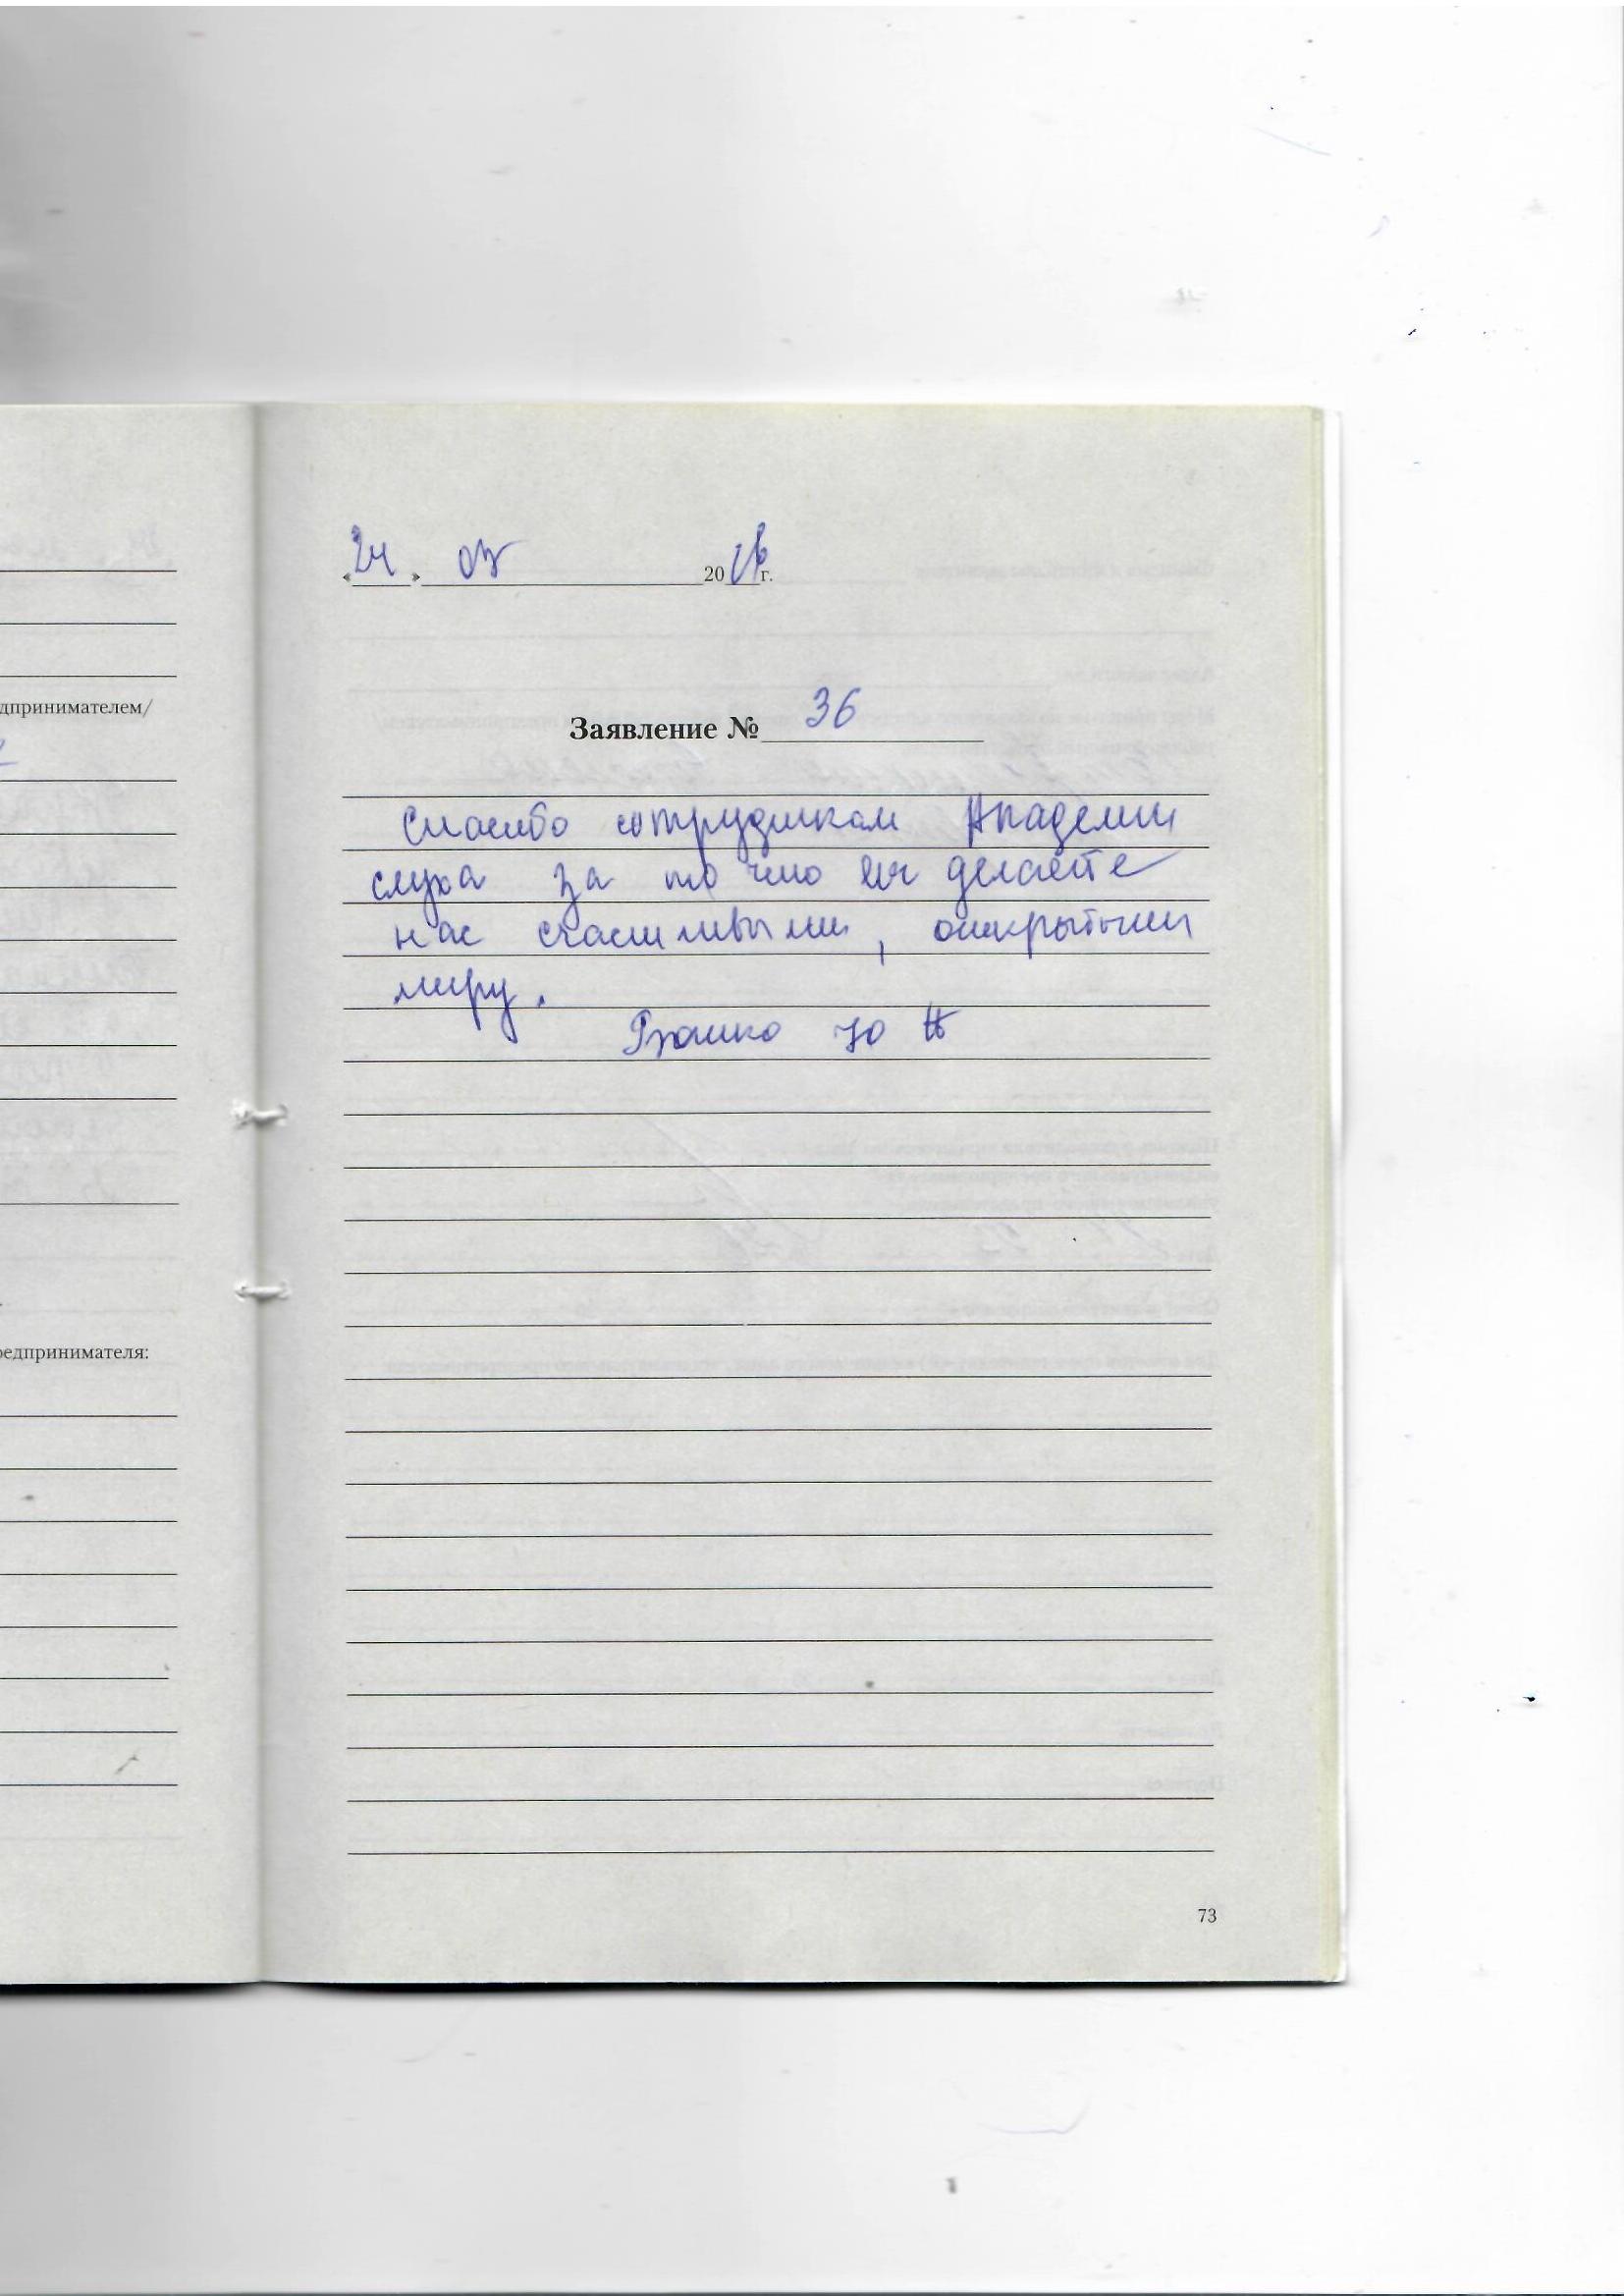 «24» 03 2016 г.
дпринимателем/
Заявление № 36
Спасибо сотрудникам Академии
слуха за то что вы делаете
нас счастливыми, открытыми
миру.
едпринимателя:
73